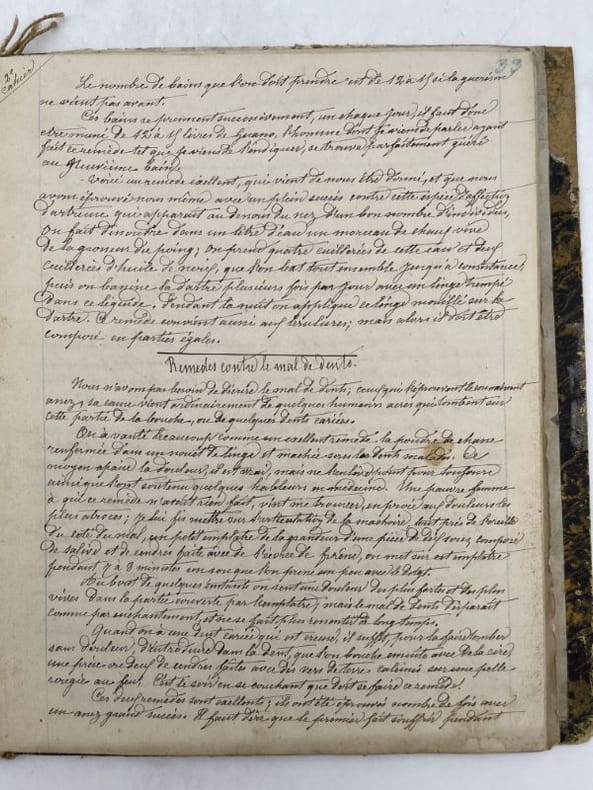 2e
cahier
33
Le nombre de bains que l'on doit prendre est de 12 à 15 si la guérison
ne vient pas avant.
Ces bains se prennent successivement, un chaque jour, il faut donc
etre muni de 12 à 15 livres de Guano. L'homme dont je viens de parler ayant
fait ce remède tel que je viens de l'indiquer, se trouva parfaitement guéri
au neuvième bain.
Voici un remède excellent, qui vient de nous être donné, et que nous
avons éprouvé nous même avec un plein succès contre cette espèce d'affection
dartreuse qui apparait au dessous du nez d'un bon nombre d'individus,
On fait dissoudre dans un litre d'eau un morceau de chaux vive
de la grosseur du poing; on prend quatre cuillerées de cette eau et deux
cuillerées d'huile de que l'on bat tout ensemble jusqu'à consistance,
puis on bassine la dartre plusieurs fois par jour avec un linge trempé
dans ce liquide. Pendant la nuit on applique ce linge mouillé sur la
dartre. Ce remède convient aussi aux brûlures; mais alors il doit être
composé en parties égales.
Remedes contre le mal de dents.
Nous n'avons pas besoin de décrire le mal de dents, ceux qui l'éprouvent le connaissent
assez, sa cause vient ordinairement de quelques humeurs acres qui tombent sur
cette partie de la bouche, ou de quelques dents cariées.
On a vanté beaucoup comme un excellent remède la poudre de chasse
renfermée dans un nouet de linge et machée sur les dents malades. Ce
moyen apaise la douleur, il est vrai, mais ne l'enlève point pour toujours
ainsi que l'ont soutenu quelques hableurs en médecine. Une pauvre femme
à qui ce remède n'avait rien fait, vint me trouver, en proie aux douleurs les
plus atroces; je lui fis mettre sur l'articulation de la machoire, tout près de l'oreille
du coté du mal, un petit emplatre de la grandeur d'une pièce de dix sous, composé
de salive et de cendres faite avec de l'écorce de frêne, on met sur cet emplatre
pendant 7 à 8 minutes en sou que l'on presse un peu avec le doigt.
Au bout de quelques instants on sent une douleur des plus fortes et des plus
vives dans la partie couverte par l'emplatre; mais le mal de dents disparait
comme par enchantement, et ne se fait plus ressentir de long temps.
Quand on a une dent cariée qui est creuse, il suffit, pour la faire tomber
sans douleur, d'introduire dans la dent, que l'on bouche ensuite avec de la cire,
une prise ou deux de cendres faites avec des vers de terre calcinés sur une pelle
rougie au feu. C'est le soir en se couchant que doit se faire ce remède.
Ces deux remèdes sont excellents; ils ont été éprouvés nombre de fois avec
un assez grand succès. Il faut dire que le premier fait souffrir pendant